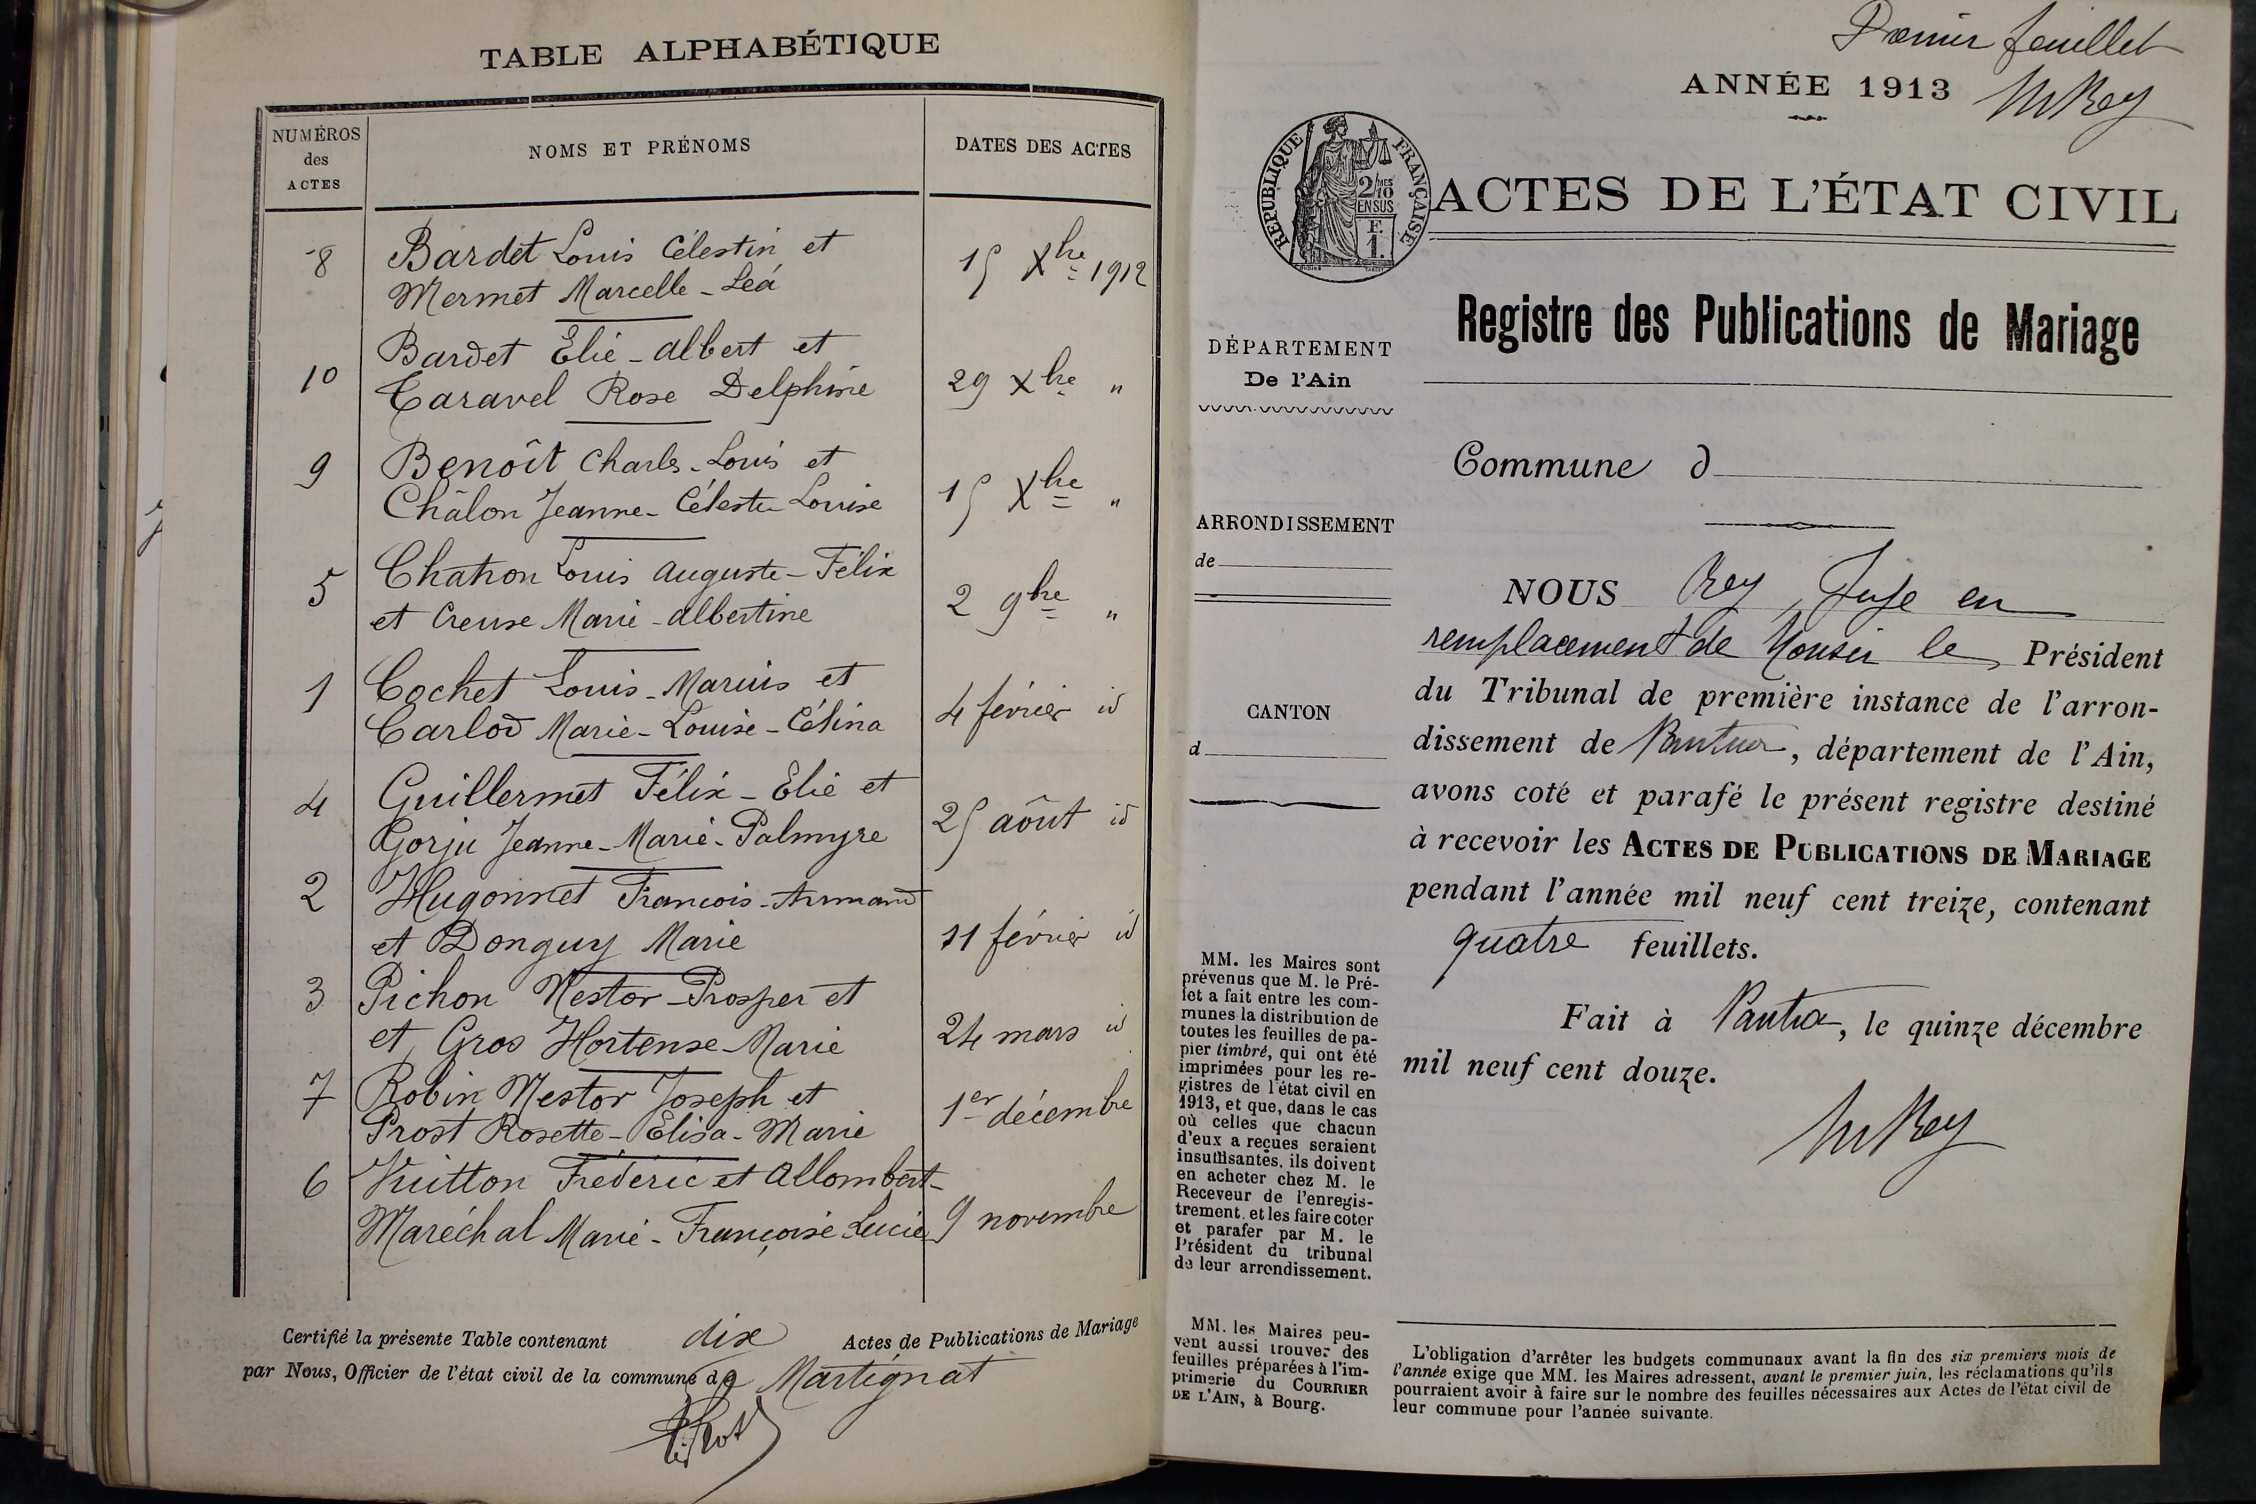 TABLE ALPHABÉTIQUE
NUMÉROS
des
ACTES
NOMS ET PRÉNOMS
DATES DES ACTES
8 Bardet Louis Célestin et
Mermet Marcelle - Léa 15 Xbre 1912
10 Bardet Elie - Albert et
Caravel Rose Delphine 29 Xbre "
9 Benoît Charles - Louis et
Châlon Jeanne - Céleste Louise 15 Xbre "
5 Chatron Louis Auguste - Félix
et Creuse Marie - Albertine 2 9bre "
1 Cochet Louis - Marius et
Carlod Marie - Louise - Célina 4 février id
4 Guillermet Félix - Elie et
Gorju Jeanne - Marie - Palmyre 25 août id
2 Hugonnet François - Armand
et Donguy Marie 11 février id
3 Pichon Nestor - Prosper et
et Gros Hortense - Marie 24 mars id
7 Robin Nestor Joseph et
Prost Rosette - Elisa - Marie 1er décembre
6 Vuitton Frédéric et Allombert-
Maréchal Marie - Françoise Lucie 9 novembre
Certifié la présente Table contenant dix Actes de Publications de Mariage
par Nous, Officier de l'état civil de la commune de Martignat
Premier feuillet
ANNÉE 1913
MRey
RÉPUBLIQUE FRANÇAISE
2/10 MES
EN SUS
F.
1.
ACTES DE L'ÉTAT CIVIL
Registre des Publications de Mariage
DÉPARTEMENT
De l'Ain
Commune d
ARRONDISSEMENT
de
CANTON
d
NOUS Rey, Juge en
remplacement de Monsieur le Président
du Tribunal de première instance de l'arron-
dissement de Nantua, département de l'Ain,
avons coté et parafé le présent registre destiné
à recevoir les ACTES DE PUBLICATIONS DE MARIAGE
pendant l'année mil neuf cent treize, contenant
quatre feuillets.
Fait à Nantua, le quinze décembre
mil neuf cent douze.
MRey
MM. les Maires sont
prévenus que M. le Pré-
fet a fait entre les com-
munes la distribution de
toutes les feuilles de pa-
pier timbré, qui ont été
imprimées pour les re-
gistres de l'état civil en
1913, et que, dans le cas
où celles que chacun
d'eux a reçues seraient
insuffisantes, ils doivent
en acheter chez M. le
Receveur de l'enregis-
trement, et les faire coter
et parafer par M. le
Président du tribunal
de leur arrondissement.
MM. les Maires peu-
vent aussi trouver des
feuilles préparées à l'im-
primerie du COURRIER
DE L'AIN, à Bourg.
L'obligation d'arrêter les budgets communaux avant la fin des six premiers mois de
l'année exige que MM. les Maires adressent, avant le premier juin, les réclamations qu'ils
pourraient avoir à faire sur le nombre des feuilles nécessaires aux Actes de l'état civil de
leur commune pour l'année suivante.